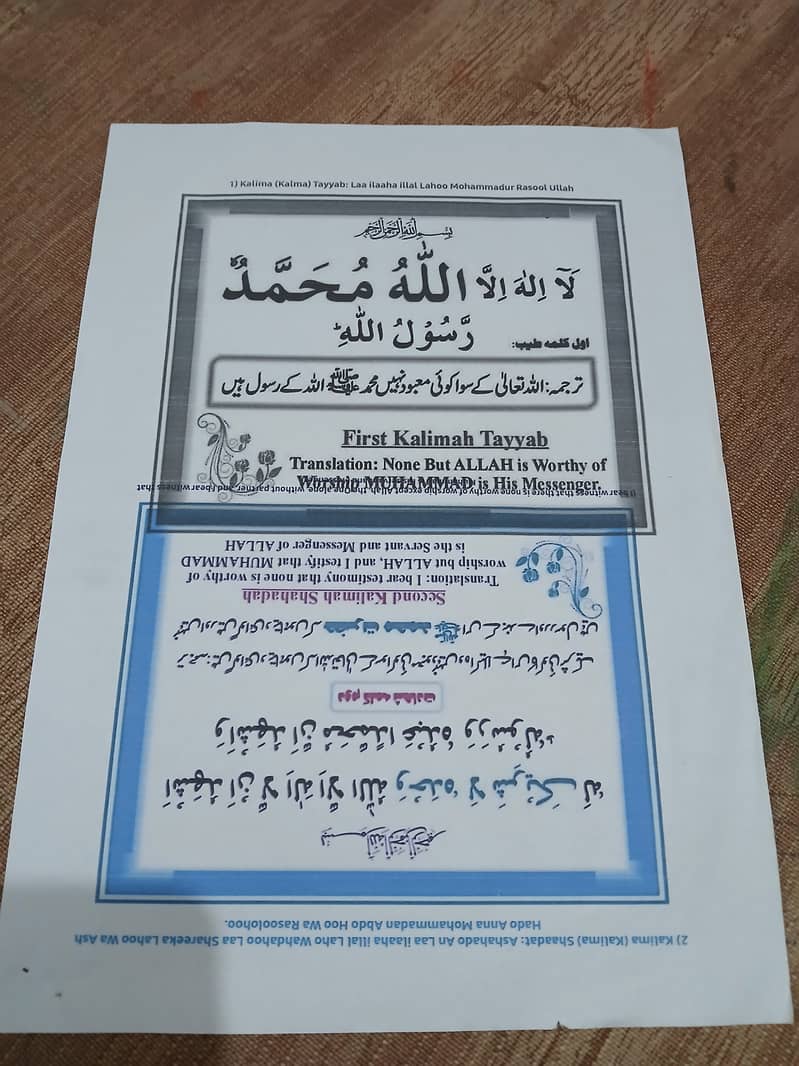 1) Kalima (Kalma) Tayyab: Laa ilaaha illal Lahoo Mohammadur Rasool Ullah
بسم الله الرحمن الرحيم
لَآ اِلٰهَ اِلَّا اللّٰهُ مُحَمَّدٌ
رَّسُوْلُ اللّٰهِؕ
اول کلمه طیب:
ترجمہ: اللہ تعالیٰ کے سوا کوئی معبود نہیں محمد ﷺ اللہ کے رسول ہیں
First Kalimah Tayyab
Translation: None But ALLAH is Worthy of
Worship MUHAMMAD is His Messenger.
2) Kalima (Kalima) Shaadat: Ashahado An Laa ilaaha illal Laho Wahdahoo Laa Shareeka Lahoo Wa Ash
Hado Anna Mohammadan Abdo Hoo Wa Rasoolohoo.
بسم الله الرحمن الرحيم
اَشْهَدُ اَنْ لَّآ اِلٰهَ اِلَّا اللّٰهُ وَحْدَهٗ لَا شَرِيْكَ لَهٗ
وَاَشْهَدُ اَنَّ مُحَمَّدًا عَبْدُهٗ وَرَسُوْلُهٗؕ
دوم کلمه شهادت
Second Kalimah Shahadah
Translation: I bear testimony that none is worthy of
worship but ALLAH, and I testify that MUHAMMAD
is the Servant and Messenger of ALLAH
(I) Bear witness that there is none worthy of worship except Allah, the One alone, without partner, and I bear witness that